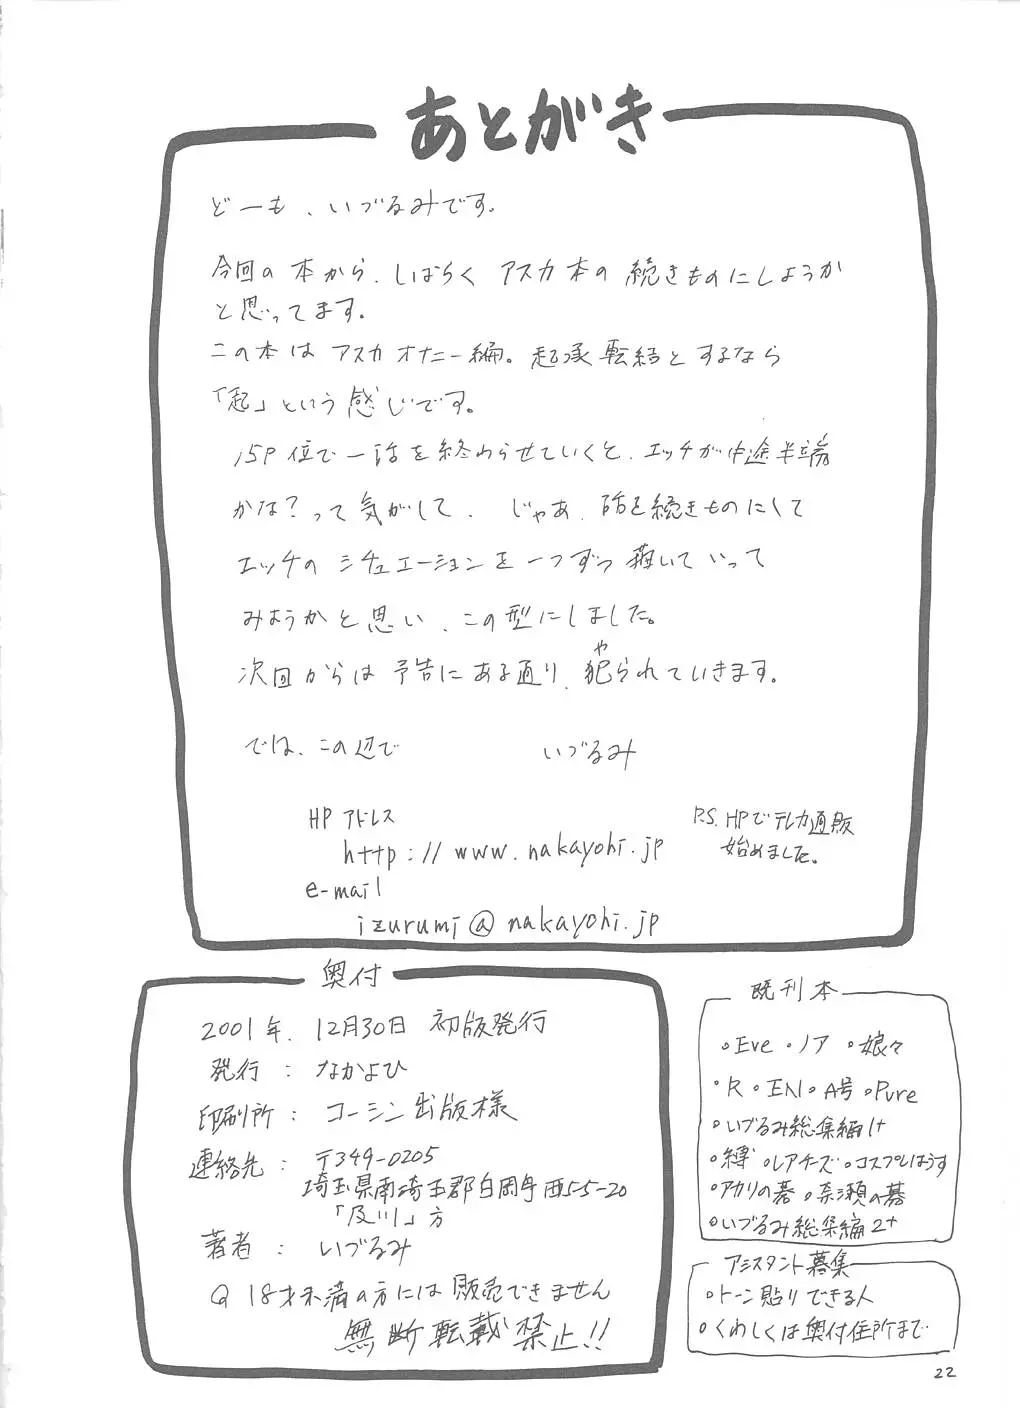 あとがき
どーも、いづるみです。
今回の本から、しばらく アスカ本の 続きものにしようか
と思ってます。
この本は アスカ オナニー編。起承転結と するなら
「起」という 感じです。
15P 位で 一話を 終わらせていくと、エッチが 中途半端
かな?って 気がして、じゃあ、続きものにして
エッチの シチュエーションを 一つずつ 描いて いって
みようかと 思い、この型にしました。
次回からは 予告に ある通り、犯られて いきます。
や
では、この辺で いづるみ
HP アドレス
http://www.nakayohi.jp
e-mail
izurumi@nakayohi.jp
P.S. HPで テレカ通販
始めました。
奥付
2001年、12月30日 初版発行
発行 : なかよひ
印刷所 : コーシン出版様
連絡先 : 〒349-0205
埼玉県南埼玉郡白岡町西5-5-20
「及川」方
著者 : いづるみ
18才未満の方には 販売できません
無断転載禁止!!
既刊本
・Eve ・ノア ・娘々
・R ・ENI ・A号 ・Pure
・いづるみ総集編1+
・縛 ・レアチーズ ・コスプレはうす
・アカリの碁 ・奈瀬の碁
・いづるみ総集編2+
アシスタント募集
・トーン貼りできる人
・くわしくは奥付住所まで
22